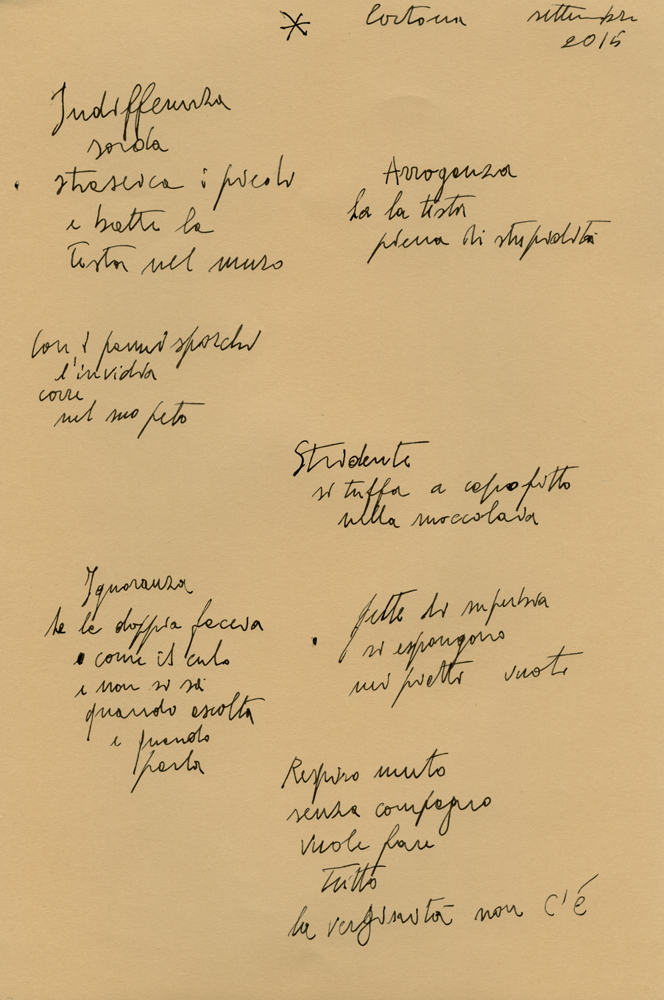 Cortona settembre
2015
Indifferenza
sorda
strascica i piedi
e batte la
testa nel muro
Arroganza
ha la testa
piena di stupidità
Con i panni sporchi
l'invidia
corre
nel suo peto
Stridente
si tuffa a capofitto
nella moccolaia
Ignoranza
ha la doppia faccia
come il culo
e non si sa
quando ascolta
e quando
parla
fette di superbia
si espongono
nei piatti vuoti
Respiro muto
senza compagno
vuole fare
tutto
la verginità non c'é